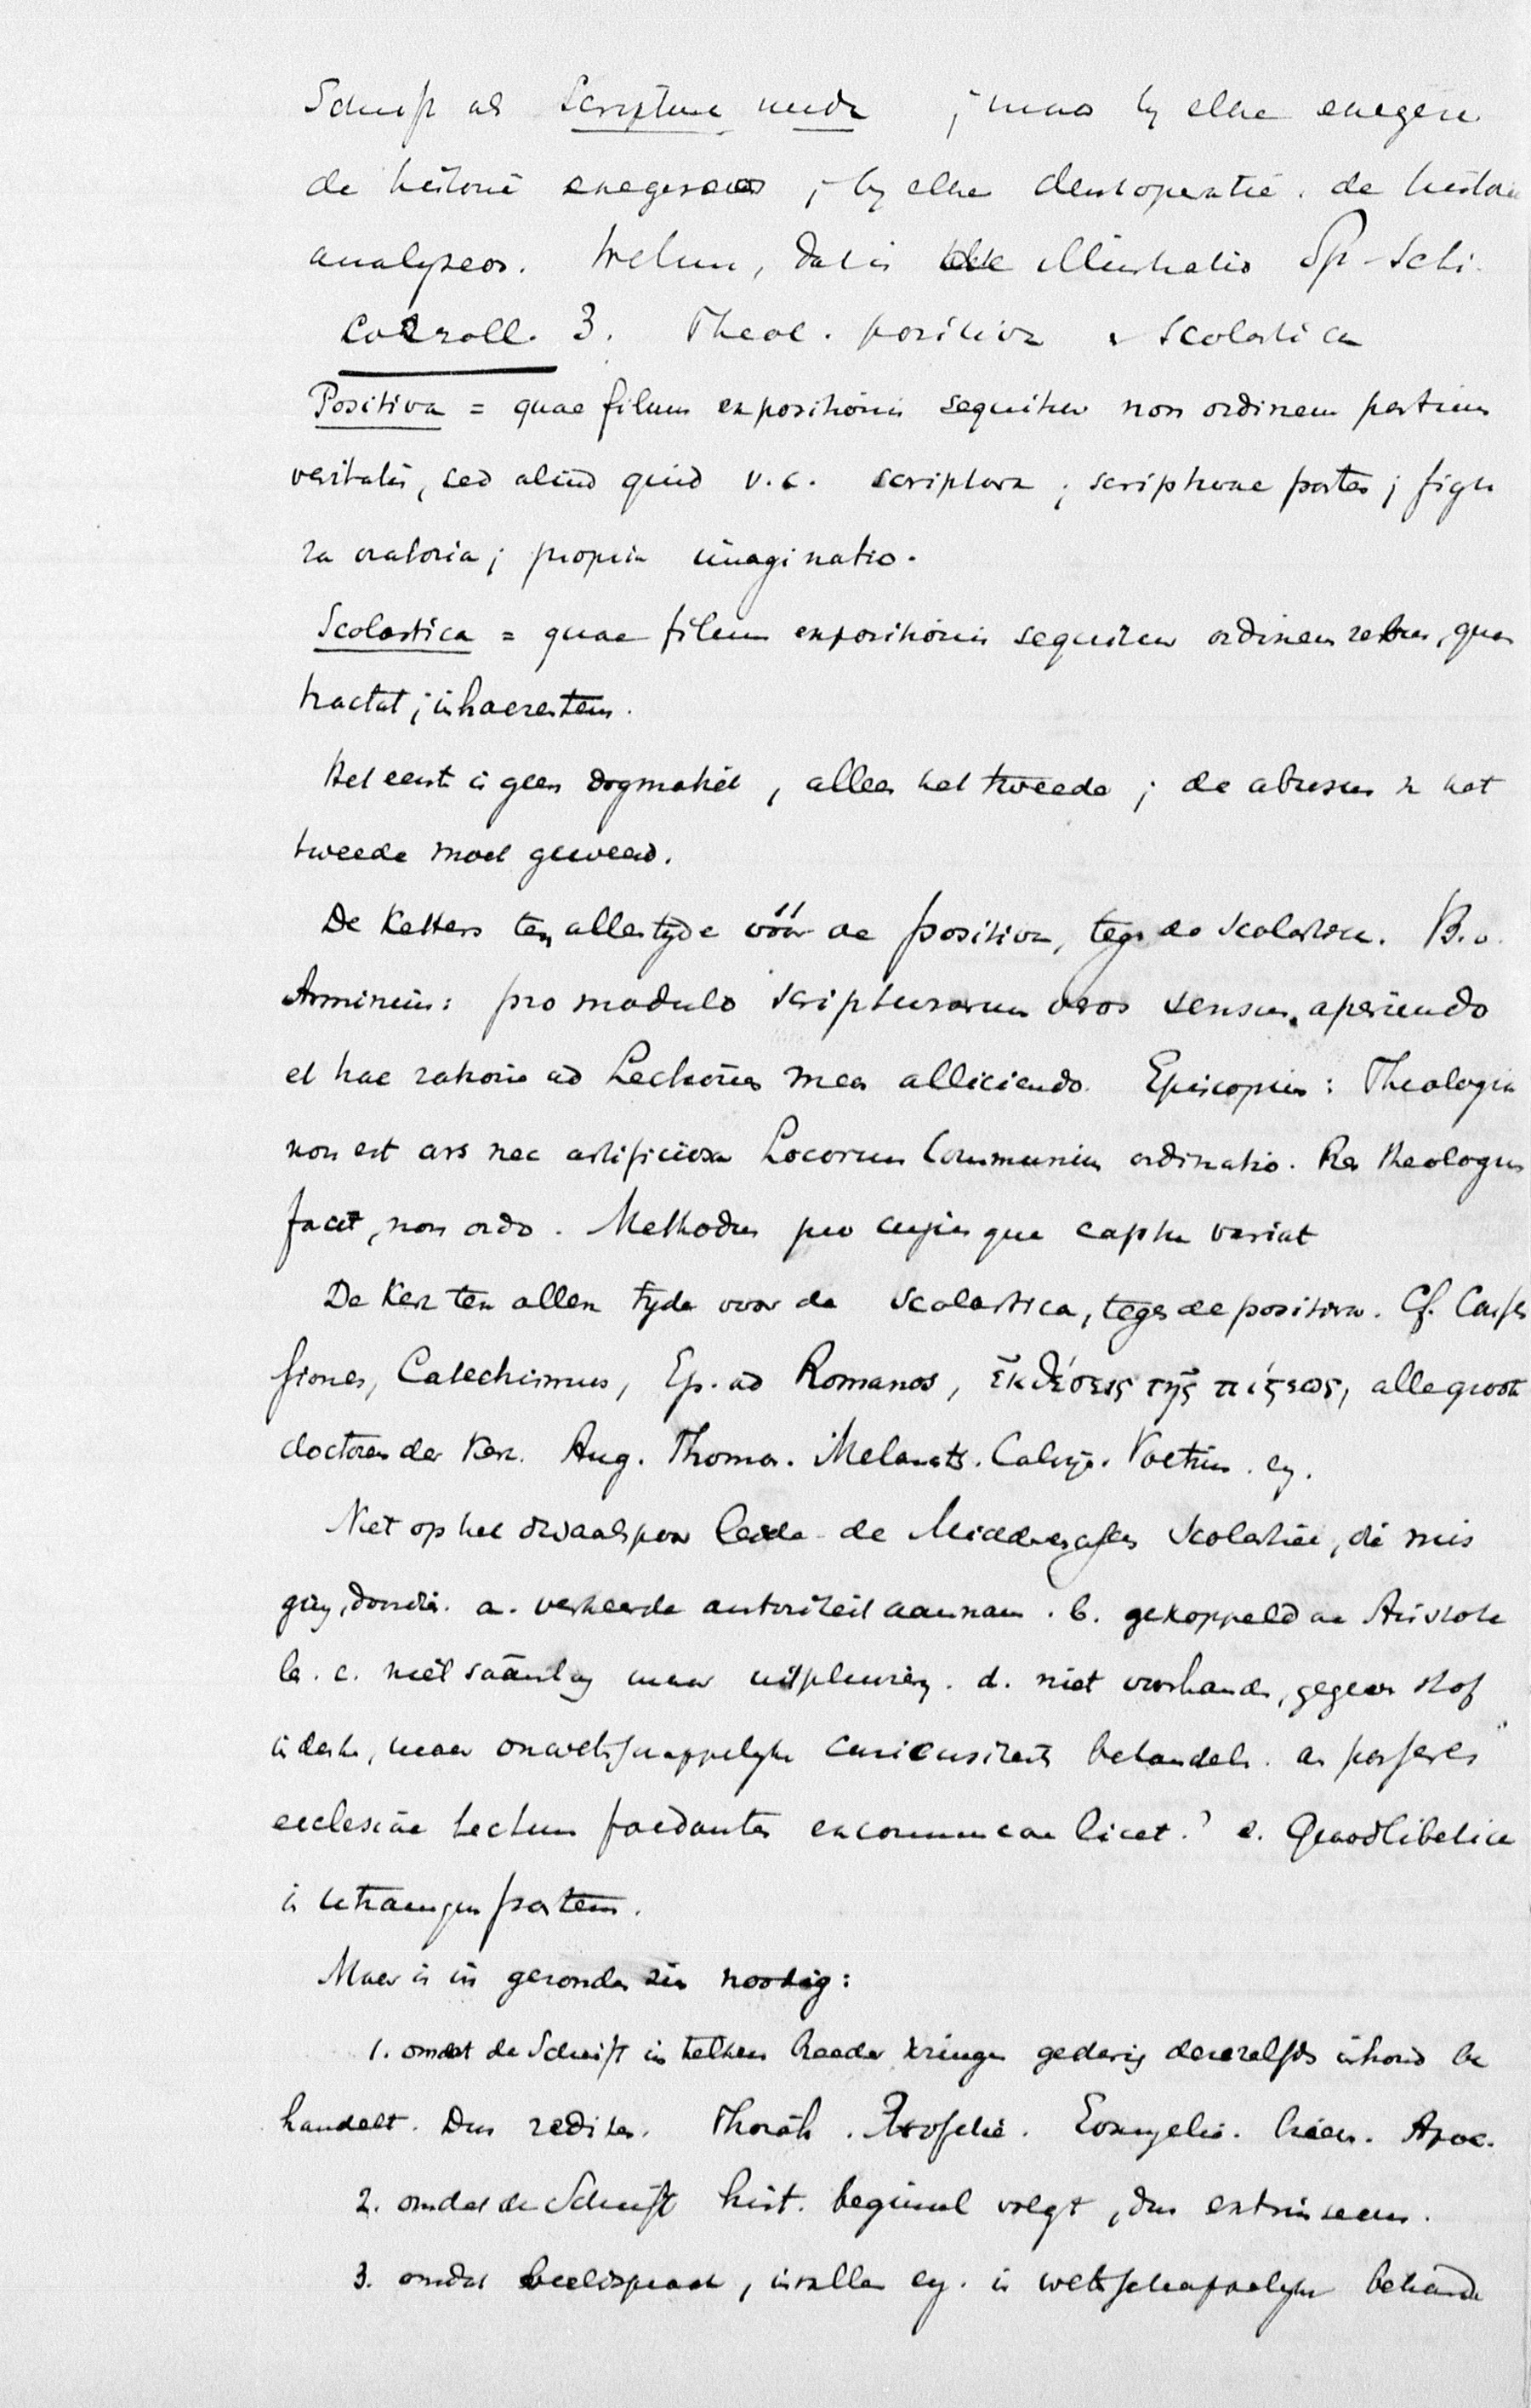 Schrift als Scriptura nuda ; maar by elke exegese
de historie exegeseos ; by elke denkoperatie de historie
analyseos. Welnu, dat is illustratio Sp. Scti.
Corroll. 3. Theol. positiva & scolastica
Positiva = quae filum expositionis sequitur non ordinem partium
veritatis, sed aliud quid v.c. scriptura ; scripturae partes ; figu
ra oratoria ; propria imaginatio.
Scolastica = quae filum expositionis sequitur ordinem rebus, quas
tractat ; inhaerentem.
Het eerste is geen dogmatiek, alleen het tweede ; de abusus in het
tweede moet geweerd.
De Ketters ten allen tyde vóór de positiva, tegen de scolastica. B.v.
Arminius : pro modulo scripturarum veros sensus aperiendo
et hac ratione ad Lectiones meas alliciendo. Episcopius : Theologia
non est ars nec artificiosa Locorum Communium ordinatio. Res theologum
facit, non ordo. Methodus pro cujusque captu variat
De Kerk ten allen tyde voor de scolastica, tegen de positiva. Cf. Confes
siones, Catechismus, Ep. ad Romanos, ἐκθέσεις τῆς πίςεως, alle groote
doctoren der Kerk. Aug. Thomas. Melancts. Calvyn. Voetius. ez.
Niet op het dwaalspoor leide de Middeneeuwsche Scolastiek, die mis
ging, doordien a. verkeerde autoriteit aannam. b. gekoppeld aan Aristote
les. c. niet maar uitpluizing. d. niet voorhanden, gegeven stof
indeelde, maar onwetenschappelyke curieusiteiten behandelde. an passeres
ecclesiae tectum foedantes excommunicare licet ? e. Quodlibetica
in utramque partem.
Maar is in gezonden zin noodig :
1. omdat de Schrift in telkens breeder kringen gedurig denzelfden inhoud be
handelt. Dus reditus. Thorah. Profetie. Evangelie. Brieven. Apoc.
2. omdat de Schrift hist. beginsel volgt, dus extrinsecum.
3. omdat beeldspraak, invallen ez. in wetenschappelyke behande